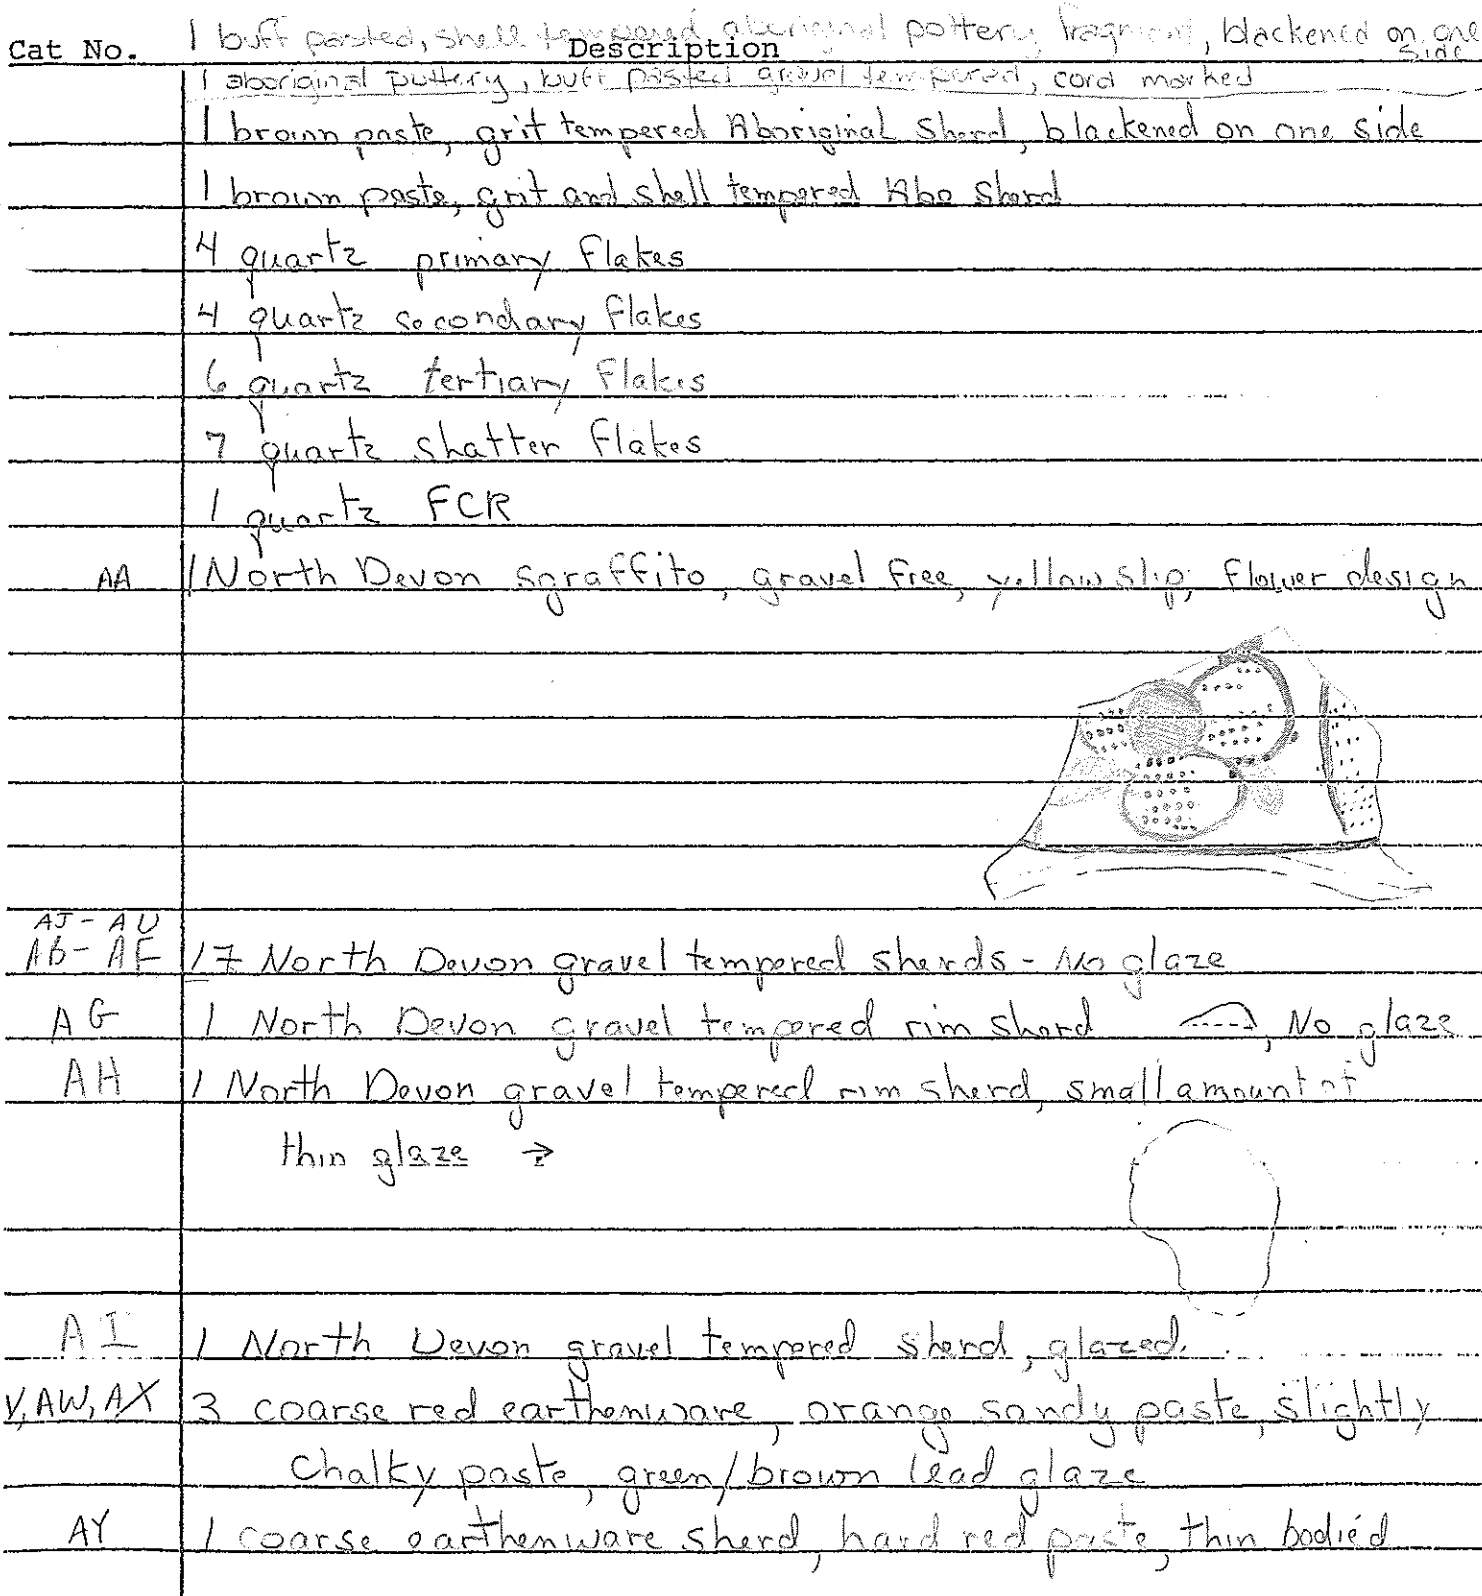 1 buff pasted, shell tempered aboriginal pottery fragment, blackened on one side
Cat No. Description
1 aboriginal pottery, buff pasted gravel tempered, cord marked
1 brown paste, grit tempered Aboriginal Sherd, blackened on one side
1 brown paste, grit and shell tempered Abo Sherd
4 quartz primary flakes
4 quartz secondary flakes
6 quartz tertiary flakes
7 quartz shatter flakes
1 quartz FCR
AA 1 North Devon sgraffito, gravel free, yellow slip, flower design
AJ - AU
AB - AF 17 North Devon gravel tempered sherds - No glaze
AG 1 North Devon gravel tempered rim sherd , No glaze
AH 1 North Devon gravel tempered rim sherd, small amount of
thin glaze →
AI 1 North Devon gravel tempered sherd, glazed.
V, AW, AX 3 coarse red earthenware, orange sandy paste, slightly
chalky paste, green/brown lead glaze
AY 1 coarse earthenware sherd, hard red paste, thin bodied